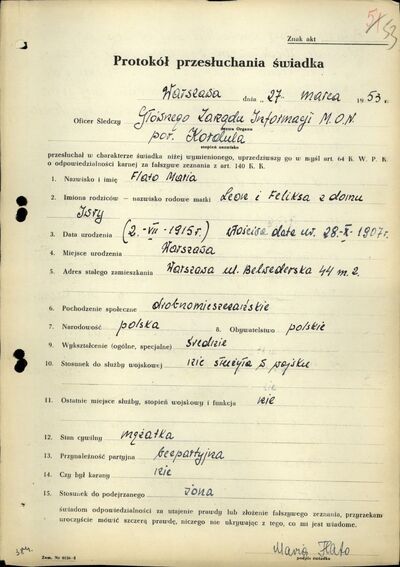 Znak akt
51/53
Protokół przesłuchania świadka
Warszawa dnia 27. marca 1953 r.
Oficer Śledczy Głównego Zarządu Informacji M.O.N.
nazwa Organu
por. Kordula
stopień nazwisko
przesłuchał w charakterze świadka niżej wymienionego, uprzedziwszy go w myśl art. 64 K. W. P. K.
o odpowiedzialności karnej za fałszywe zeznania z art. 140 K. K.
1. Nazwisko i imię Flato Maria
2. Imiona rodziców — nazwisko rodowe matki Leon i Feliksa z domu
3. Data urodzenia (2.-VII-1915 r.) właściwa data ur. 28-X-1907 r.
4. Miejsce urodzenia Warszawa
5. Adres stałego zamieszkania Warszawa ul. Belwederska 44 m. 2.
6. Pochodzenie społeczne drobnomieszczańskie
7. Narodowość polska 8. Obywatelstwo polskie
9. Wykształcenie (ogólne, specjalne) średnie
10. Stosunek do służby wojskowej nie służyła w wojsku
11. Ostatnie miejsce służby, stopień wojskowy i funkcja nie
12. Stan cywilny mężatka
13. Przynależność partyjna bezpartyjna
14. Czy był karany nie
15. Stosunek do podejrzanego żona
świadom odpowiedzialności za utajenie prawdy lub złożenie fałszywego zeznania, przyrzekam
uroczyście mówić szczerą prawdę, niczego nie ukrywając z tego, co mi jest wiadome.
Maria Flato
podpis świadka
Zam. Nr